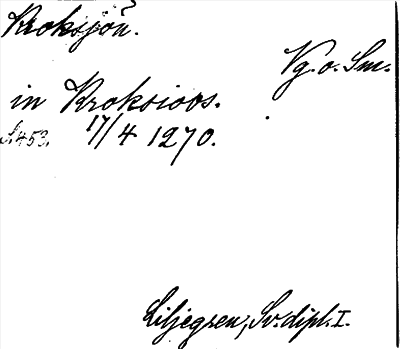 Kroksjön.
Vg. o. Sm.
in Kroksioos.
S. 453. 17/4 1270.
Liljegren, Sv. dipl. I.